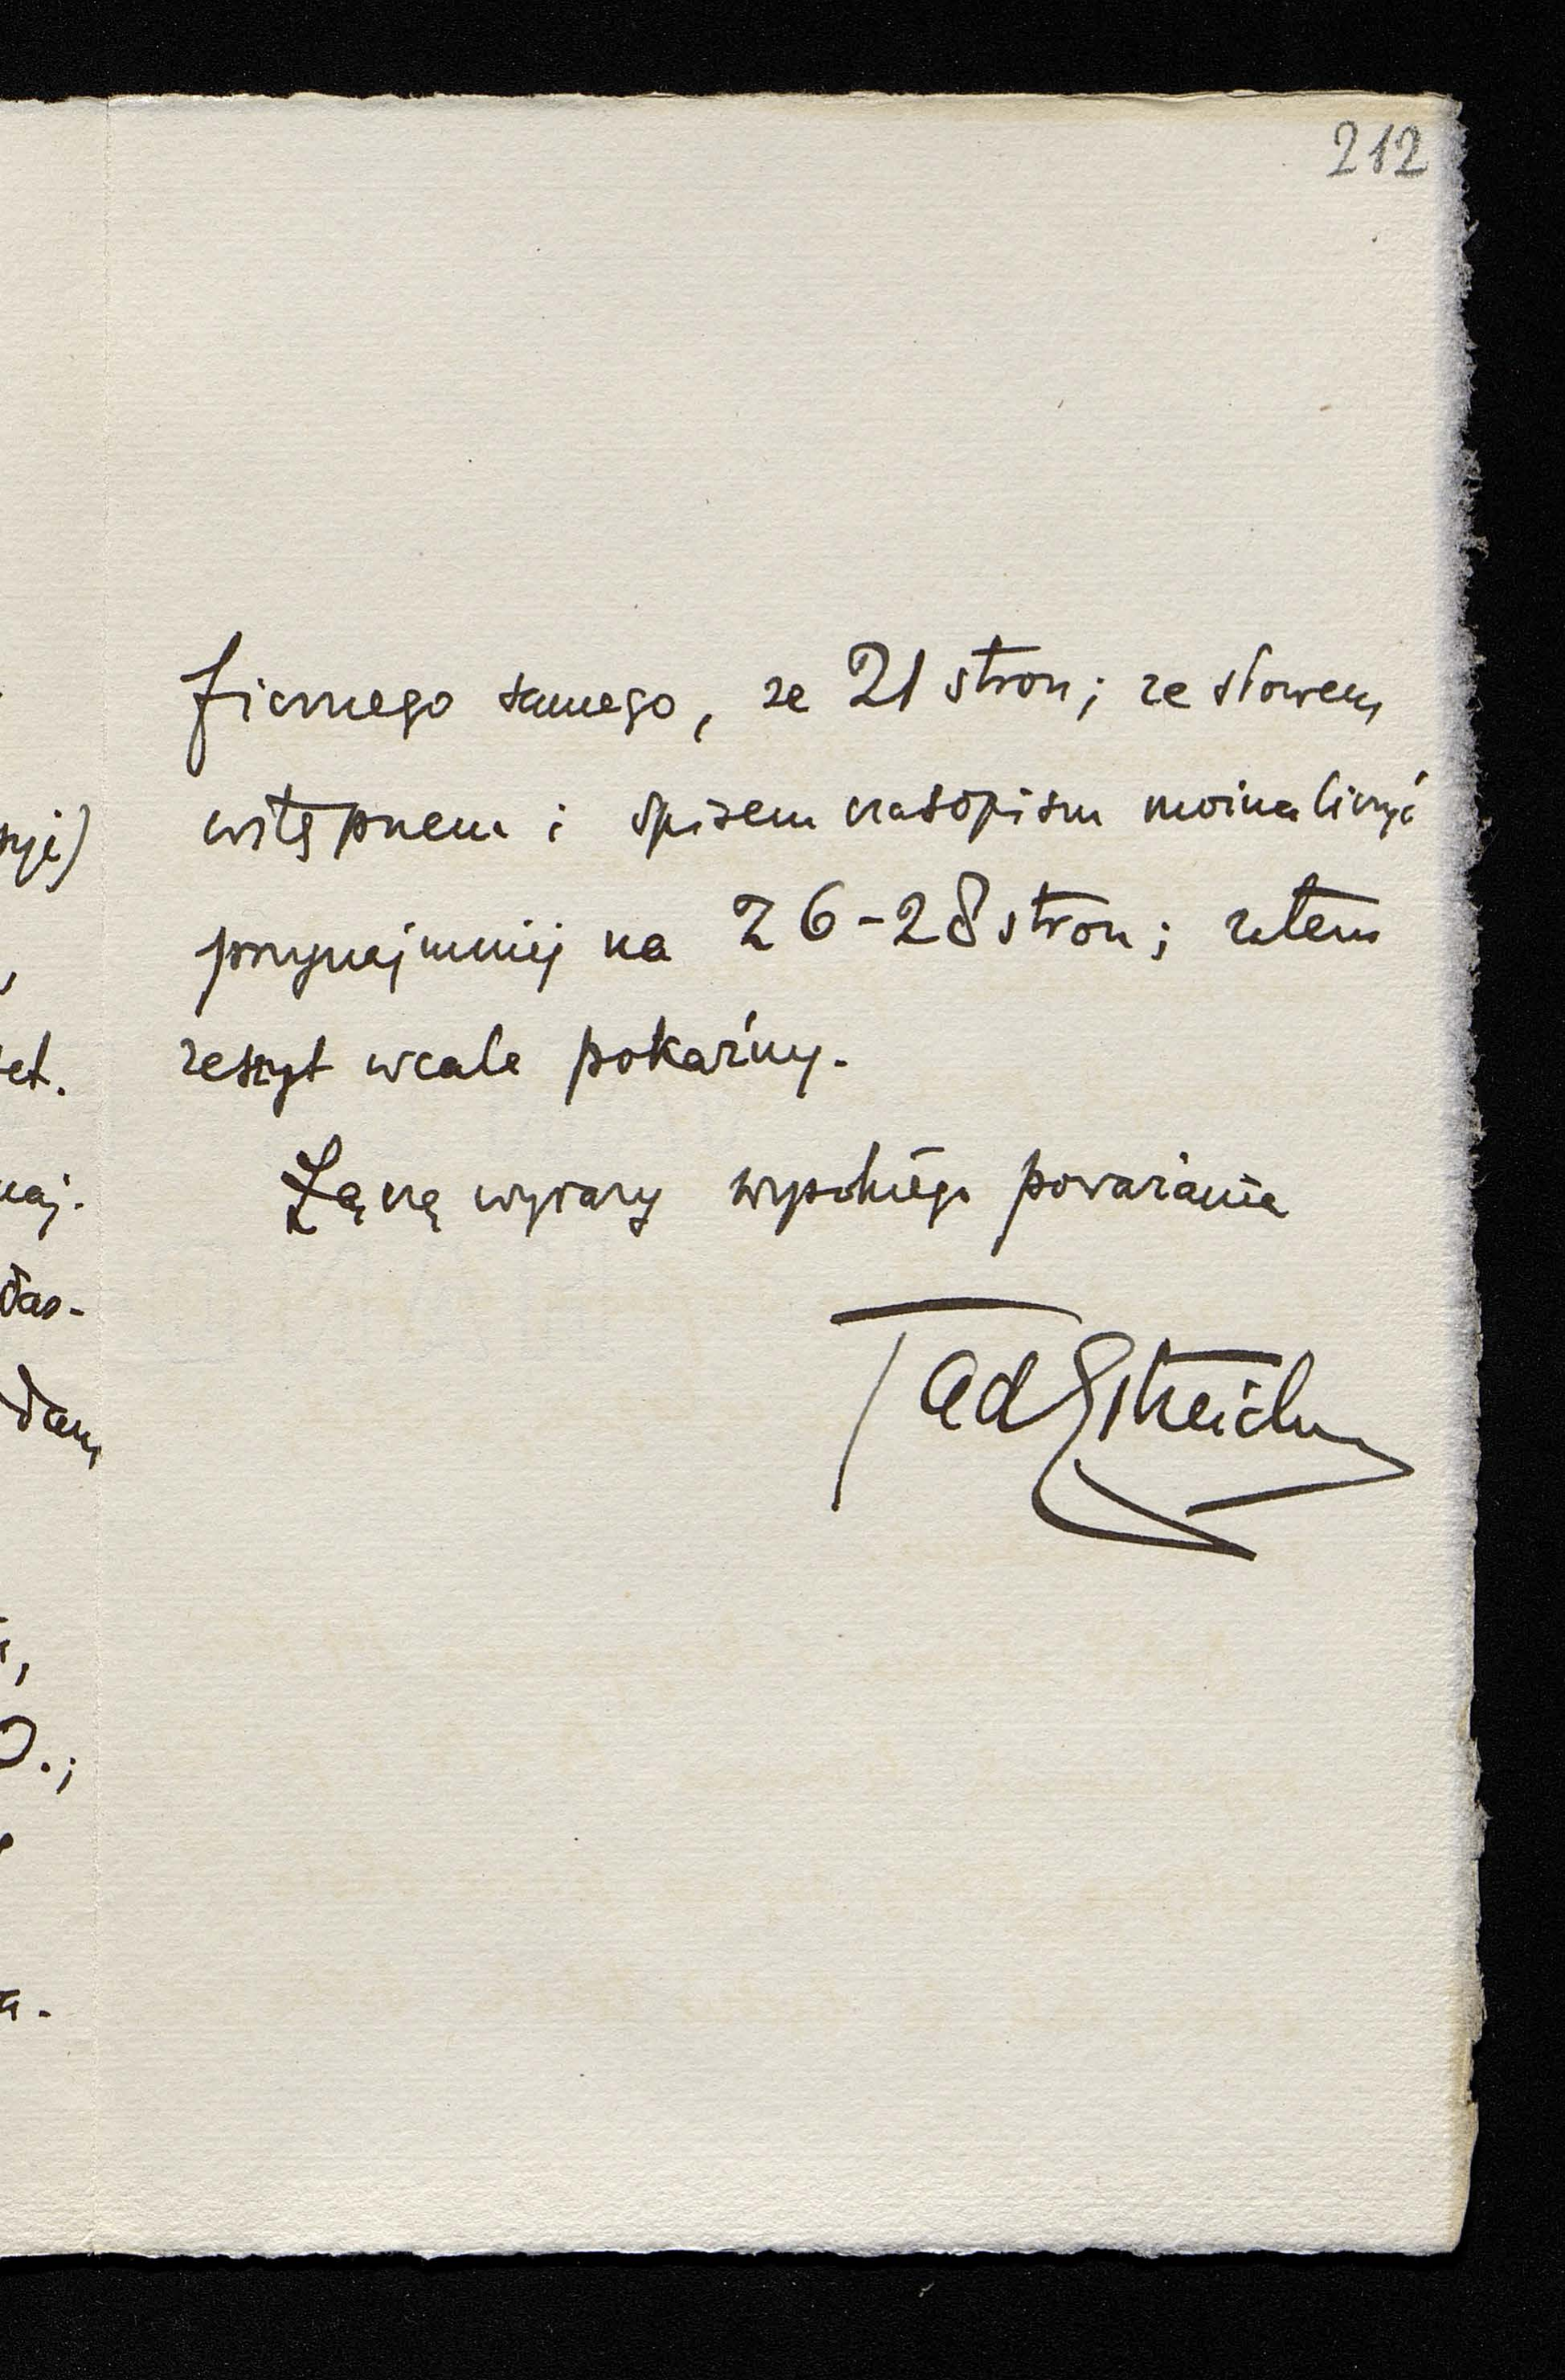 212
ficznego samego, ze 21 stron; ze słowem
wstępnem i spisem czasopism można liczyć
przynajmniej na 26-28 stron; zatem
zeszyt wcale pokaźny.
Łączę wyrazy wysokiego poważania
Tad Estreicher
yi)
et.
naj.
dam